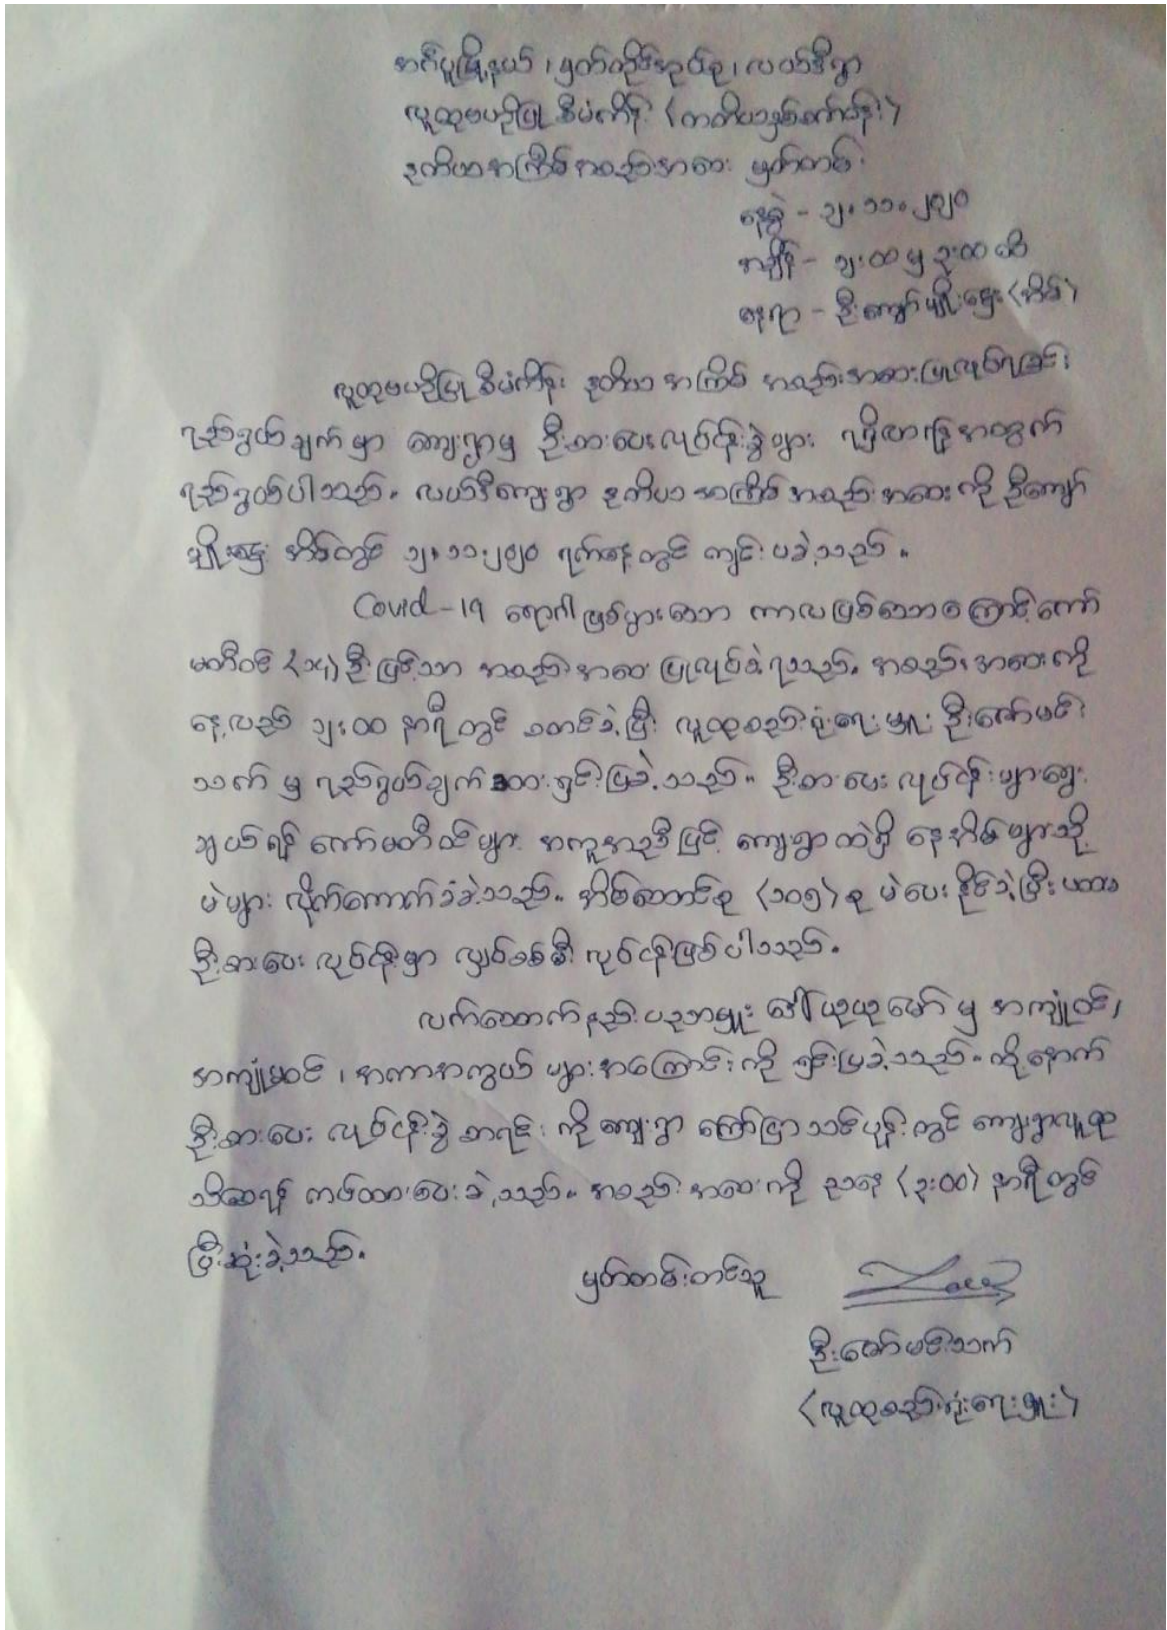 အင်္ဂပူမြို့နယ်၊ မှတ်ကိုင်းအုပ်စု၊ လယ်ဒီရွာ
လူထုဗဟိုပြု စီမံကိန်း (တတိယနှစ်စက်ဝန်း)
ဒုတိယအကြိမ်အစည်းအဝေး မှတ်တမ်း
နေ့စွဲ - ၁၂.၁၁.၂၀၂၀
အချိန် - ၁၂:၀၀ မှ ၃:၀၀ ထိ
နေရာ - ဦးကျော်မျိုးနွေး (အိမ်)
လူထုဗဟိုပြု စီမံကိန်း ဒုတိယ အကြိမ် အစည်းအဝေးပြုလုပ်ရခြင်း
ရည်ရွယ်ချက် မှာ ကျေးရွာမှ ဦးစားပေးလုပ်ငန်းခွဲများ ရရှိလာရန်အတွက်
ရည်ရွယ်ပါသည်။ လယ်ဒီကျေးရွာ ဒုတိယ အကြိမ် အစည်းအဝေး ကို ဦးကျော်
မျိုးနွေး အိမ်တွင် ၁၂.၁၁.၂၀၂၀ ရက်နေ့တွင် ကျင်းပခဲ့သည်။
Covid-19 ရောဂါဖြစ်ပွားသော ကာလ ဖြစ်သောကြောင့် ကော်
မတီဝင် (၁၅) ဦးဖြင့်သာ အစည်းအဝေး ပြုလုပ်ခဲ့ရသည်။ အစည်းအဝေးကို
နေ့လည် ၁၂:၀၀ နာရီတွင် စတင်ခဲ့ပြီး လူထုစည်းရုံးရေးမှူး ဦးဇော်မင်း
သက် မှ ရည်ရွယ်ချက် အား ရှင်းပြခဲ့သည်။ ဦးစားပေး လုပ်ငန်းများရွေး
ချယ်ရန် ကော်မတီဝင်များ အကူအညီဖြင့် ကျေးရွာထဲရှိ နေအိမ်များသို့
မဲများ လိုက်ကောက်ခံခဲ့သည်။ အိမ်ထောင်စု (၁၀၅) စု မဲပေးနိုင်ခဲ့ပြီး ပထမ
ဦးစားပေး လုပ်ငန်းမှာ လျှပ်စစ်မီး လုပ်ငန်းဖြစ်ပါသည်။
လက်ထောက်နည်းပညာမှူး ဒေါ်ယုယုမော် မှ အကျုံးဝင်၊
အကျုံးမဝင်၊ အကာအကွယ် များအကြောင်းကို ရှင်းပြခဲ့သည်။ ထို့နောက်
ဦးစားပေး လုပ်ငန်းခွဲ စာရင်း ကို ကျေးရွာ ကြော်ငြာသင်ပုန်းတွင် ကျေးရွာလူထု
သိစေရန် ကပ်ထားပေးခဲ့သည်။ အစည်းအဝေးကို ညနေ (၃:၀၀) နာရီတွင်
ပြီးဆုံးခဲ့သည်။
မှတ်တမ်းတင်သူ
ဦးဇော်မင်းသက်
(လူထုစည်းရုံးရေးမှူး)